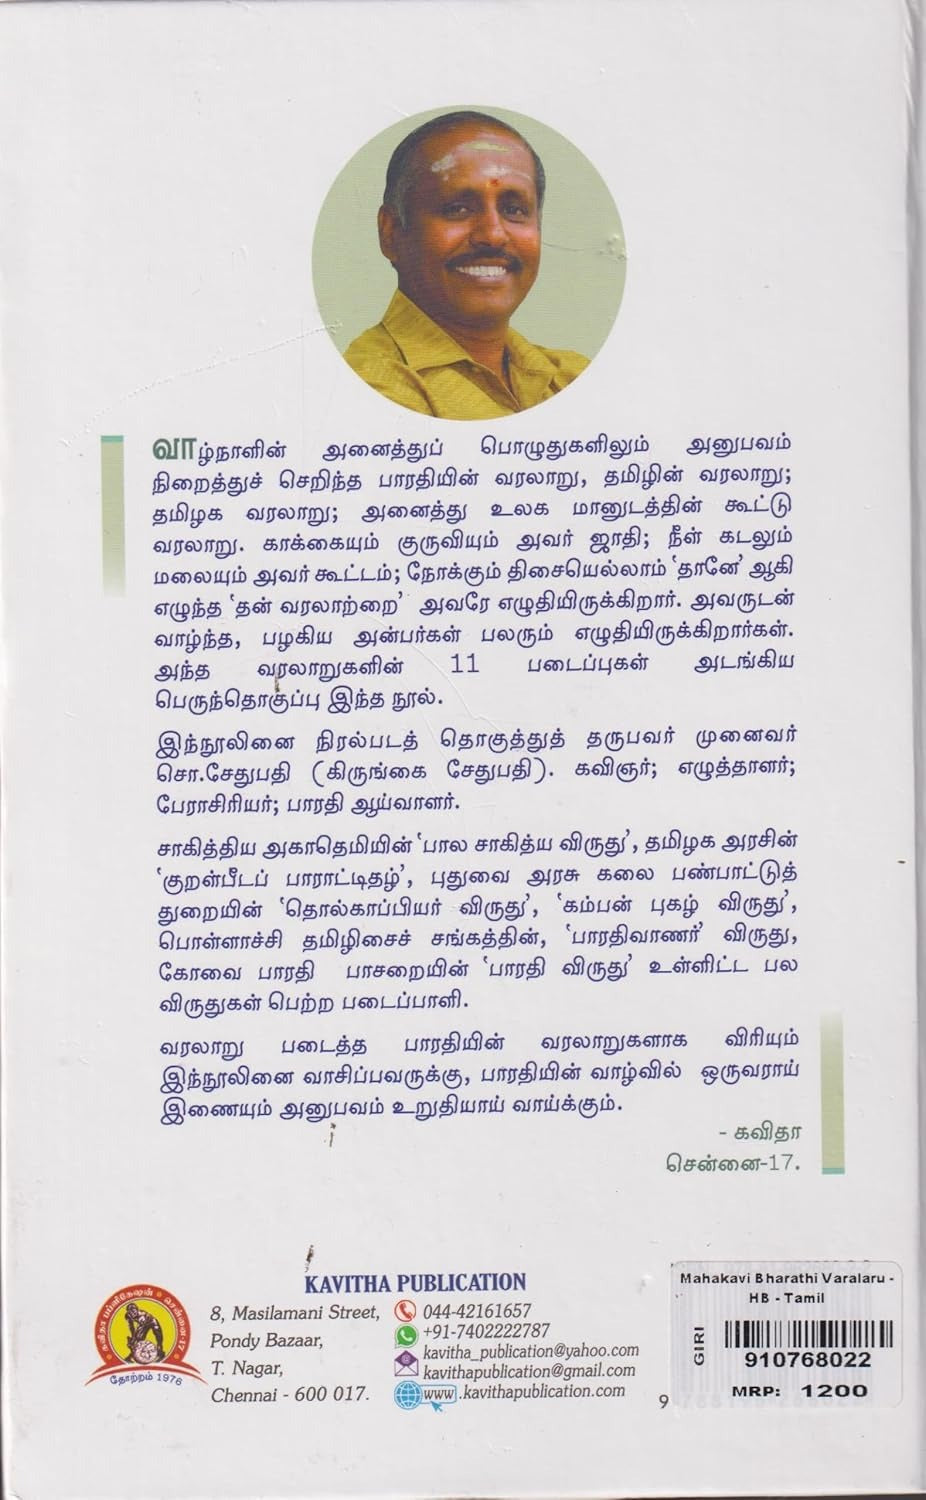 வாழ்நாளின் அனைத்துப் பொழுதுகளிலும் அனுபவம்
நிறைத்துச் செறிந்த பாரதியின் வரலாறு, தமிழின் வரலாறு;
தமிழக வரலாறு; அனைத்து உலக மானுடத்தின் கூட்டு
வரலாறு. காக்கையும் குருவியும் அவர் ஜாதி; நீள் கடலும்
மலையும் அவர் கூட்டம்; நோக்கும் திசையெல்லாம் 'தானே' ஆகி
எழுந்த 'தன் வரலாற்றை' அவரே எழுதியிருக்கிறார். அவருடன்
வாழ்ந்த, பழகிய அன்பர்கள் பலரும் எழுதியிருக்கிறார்கள்.
அந்த வரலாறுகளின் 11 படைப்புகள் அடங்கிய
பெருந்தொகுப்பு இந்த நூல்.
இந்நூலினை நிரல்படத் தொகுத்துத் தருபவர் முனைவர்
சொ.சேதுபதி (கிருங்கை சேதுபதி). கவிஞர்; எழுத்தாளர்;
பேராசிரியர்; பாரதி ஆய்வாளர்.
சாகித்திய அகாதெமியின் 'பால சாகித்ய விருது', தமிழக அரசின்
'குறள்பீடப் பாராட்டிதழ்', புதுவை அரசு கலை பண்பாட்டுத்
துறையின் 'தொல்காப்பியர் விருது', 'கம்பன் புகழ் விருது',
பொள்ளாச்சி தமிழிசைச் சங்கத்தின், 'பாரதிவாணர்' விருது,
கோவை பாரதி பாசறையின் 'பாரதி விருது' உள்ளிட்ட பல
விருதுகள் பெற்ற படைப்பாளி.
வரலாறு படைத்த பாரதியின் வரலாறுகளாக விரியும்
இந்நூலினை வாசிப்பவருக்கு, பாரதியின் வாழ்வில் ஒருவராய்
இணையும் அனுபவம் உறுதியாய் வாய்க்கும்.
- கவிதா
சென்னை-17.
கவிதா பப்ளிகேஷன் • சென்னை-17
தோற்றம் 1976
KAVITHA PUBLICATION
8, Masilamani Street,
Pondy Bazaar,
T. Nagar,
Chennai - 600 017.
044-42161657
+91-7402222787
kavitha_publication@yahoo.com
kavithapublication@gmail.com
www.kavithapublication.com
Mahakavi Bharathi Varalaru -
HB - Tamil
GIRI
910768022
MRP: 1200
9